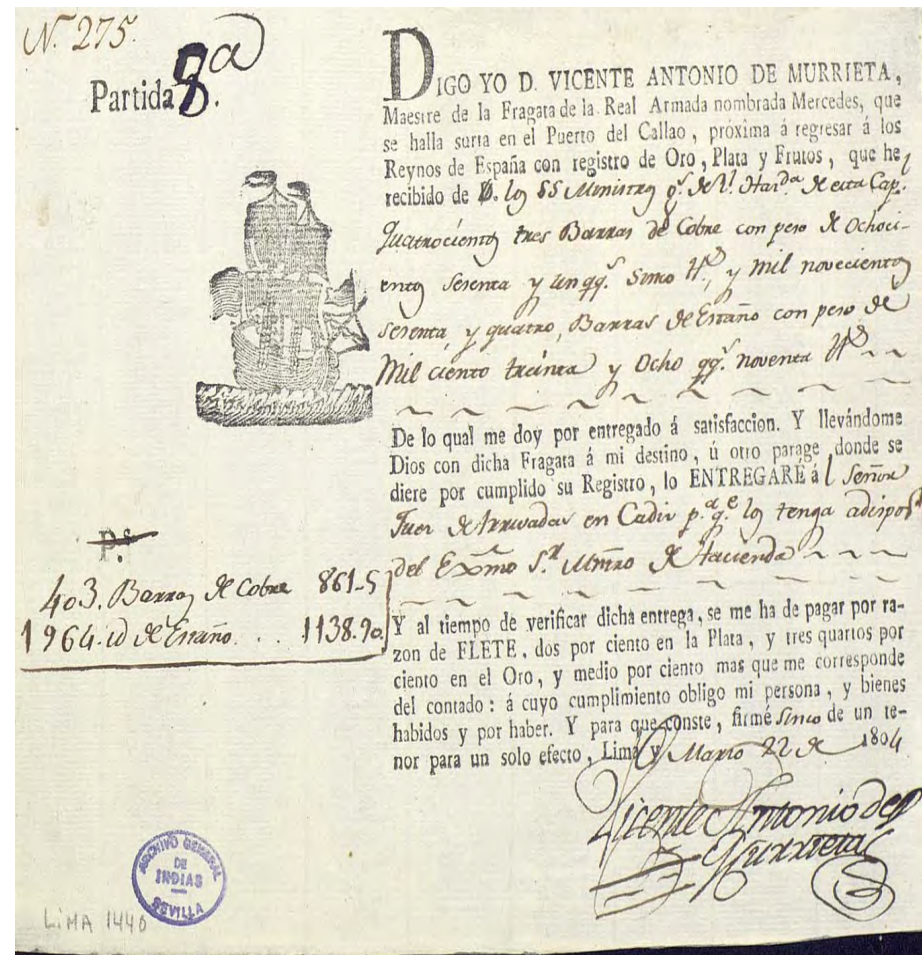 N. 275.
Partida 8ª.
DIGO YO D. VICENTE ANTONIO DE MURRIETA,
Maestre de la Fragata de la Real Armada nombrada Mercedes, que
se halla surta en el Puerto del Callao, próxima á regresar á los
Reynos de España con registro de Oro, Plata y Frutos, que he
recibido de D. los SS Ministros gs. de Rl. Hazda. de esta Cap.
Quatrocientos tres Barras de Cobre con peso de Ochoci-
entos sesenta y un qqs. sinco lbs, y mil novecientos
sesenta, y quatro, Barras de Estaño con peso de
Mil ciento treinta y Ocho qqs. noventa lbs
De lo qual me doy por entregado á satisfaccion. Y llevándome
Dios con dicha Fragata á mi destino, ú otro parage donde se
diere por cumplido su Registro, lo ENTREGARÉ ál Señor
Juez de Arrivadas en Cadiz pa. qe. los tenga a dispos
del Exmo Sr. Mtro de Hacienda
P.s
403. Barras de Cobre 861-5
1964. id de Estaño. . . 1138.90.
Y al tiempo de verificar dicha entrega, se me ha de pagar por ra-
zon de FLETE, dos por ciento en la Plata, y tres quartos por
ciento en el Oro, y medio por ciento mas que me corresponde
del contado: á cuyo cumplimiento obligo mi persona, y bienes
habidos y por haber. Y para que conste, firmé sinco de un te-
nor para un solo efecto, Lima y Marzo 22 de 1804
Vicente Antonio de
Murrieta
ARCHIVO GENERAL
DE
INDIAS
SEVILLA
LIMA 1440